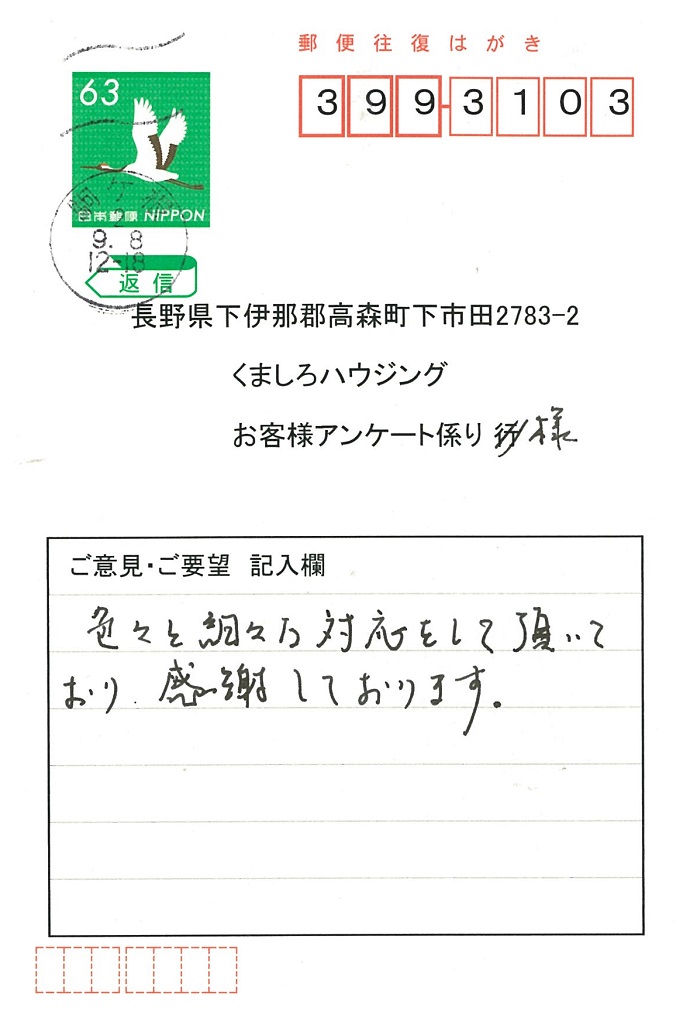 郵便往復はがき
63
399-3103
日本郵便 NIPPON
9.8
12-18
返信
長野県下伊那郡高森町下市田2783-2
くましろハウジング
お客様アンケート係り 行 様
ご意見・ご要望 記入欄
色々と細々な対応をして頂いて
おり、感謝しております。